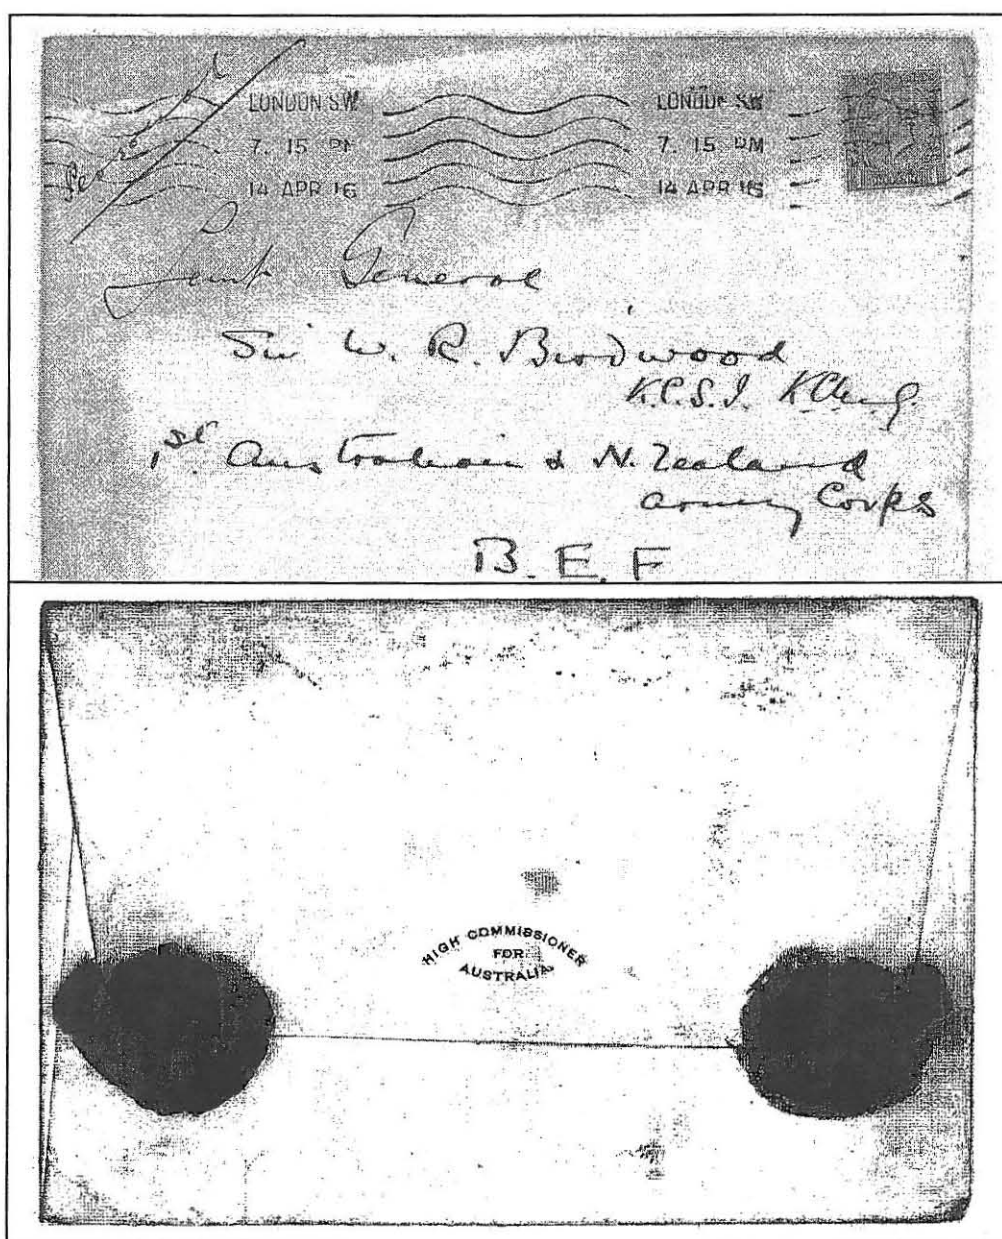 Personal
LONDON SW
7. 15 PM
14 APR 16
LONDON SW
7. 15 PM
14 APR 16
Lieut General
Sir W. R. Birdwood
K.C.S.I. KCMG.
1st Australian & N. Zealand
Army Corps
B. E. F
HIGH COMMISSIONER
FOR
AUSTRALIA